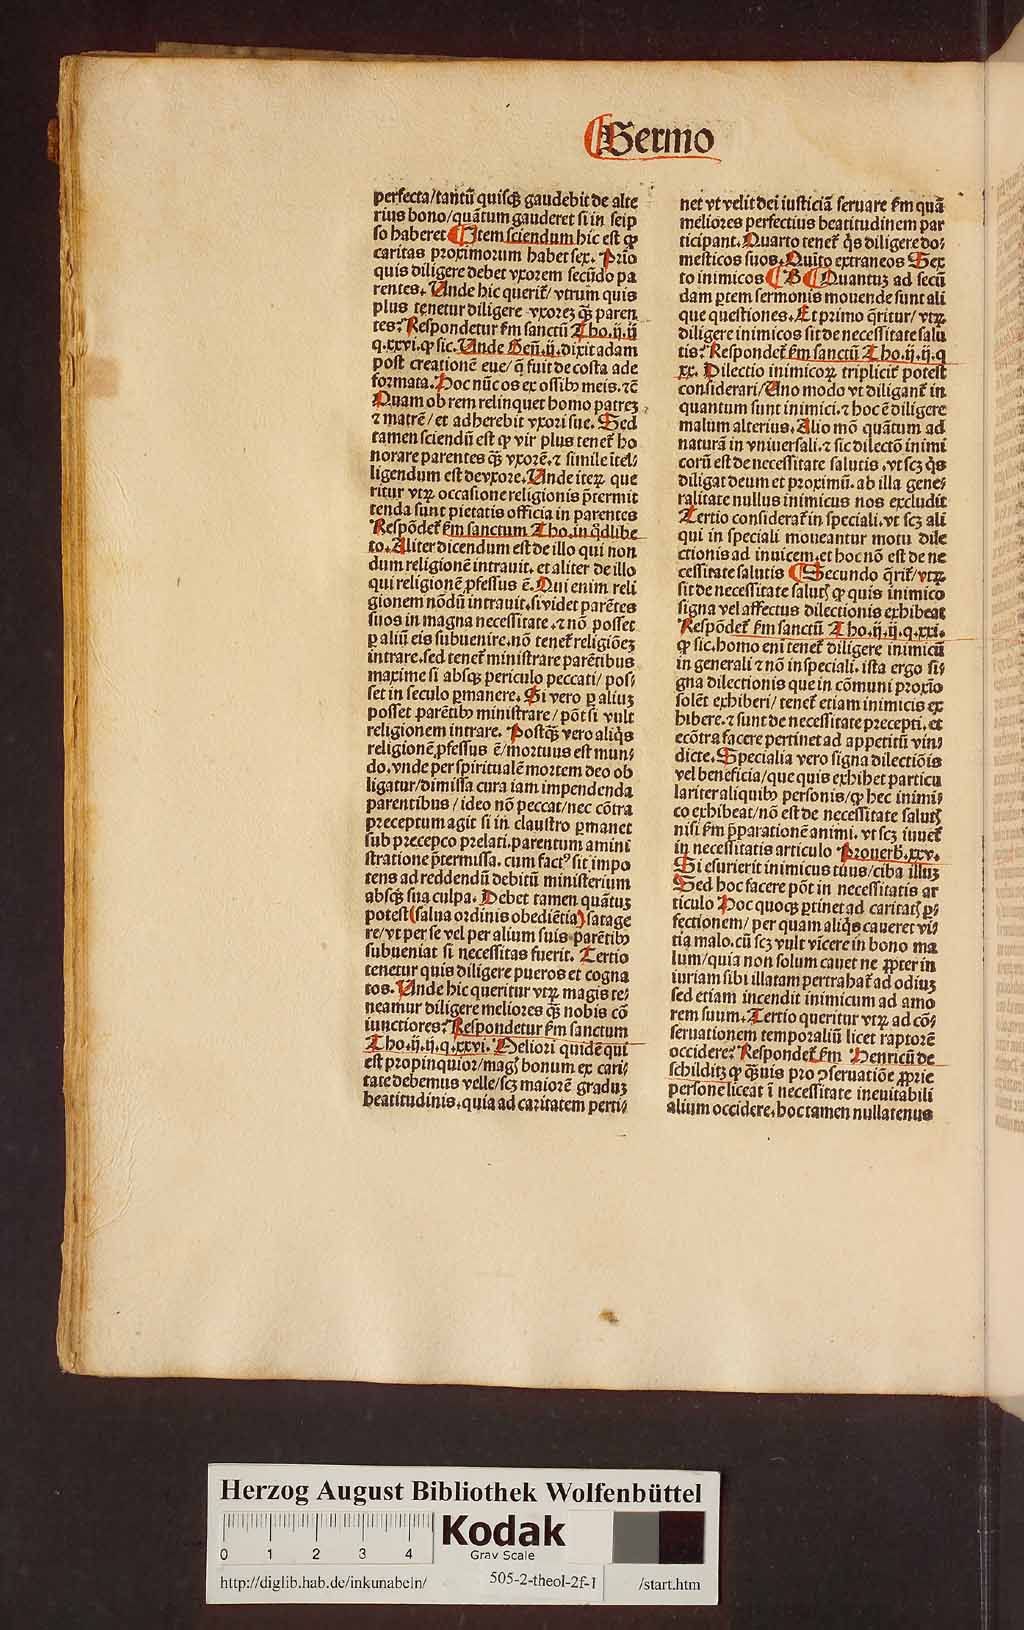 ¶Sermo
perfecta/tantū quisqꝫ gaudebit de alte
rius bono/quātum gauderet si in seip
so haberet ¶Item sciendum hic est ꝙ
caritas proximorum habet sex. Prīo
quis diligere debet vxorem secūdo pa
rentes. Unde hic querit̄/ vtrum quis
plus tenetur diligere vxorez q̄ꝫ paren
tes? Respondetur ẜm sanctū Tho.ij.ij
q.xxvi.ꝙ sic. Unde Gen̄.ij. dixit adam
post creationē eue/ q̄ fuit de costa ade
formata. Hoc nūc os ex ossibꝰ meis. ⁊c̄
Quam ob rem relinquet homo patrez
⁊ matrē/ et adherebit vxori sue. Sed
tamen sciendū est ꝙ vir plus tenet̄ ho
norare parentes q̄ꝫ vxorē. ⁊ simile ītel/
ligendum est de vxore. Unde iteꝝ que
ritur vtꝝ occasione religionis p̄termit
tenda sunt pietatis officia in parentes
Respōdet̄ ẜm sanctum Tho. in q̇dlibe
to. Aliter dicendum est de illo qui non
dum religionē intrauit. et aliter de illo
qui religionē ꝓfessus ē. Qui enim reli
gionem nōdū intrauit. si videt parētes
suos in magna necessitate .⁊ nō posset
ꝑ aliū eis subuenire. nō tenet̄ religiōez
intrare. sed tenet̄ ministrare parētibus
maxime si absqꝫ periculo peccati/ pos/
set in seculo ꝑmanere. Si vero ꝑ aliuz
posset parētibꝰ ministrare/ pōt si vult
religionem intrare. Postq̄ꝫ vero aliq̇s
religionē ꝓfessus ē/ mortuus est mun/
do. vnde per spiritualē mortem deo ob
ligatur/dimissa cura iam impendenda
parentibus / ideo nō peccat/nec cōtra
preceptum agit si in claustro ꝑmanet
sub precepco prelati. parentum amini
stratione p̄termissa. cum factꝰ sit impo
tens ad reddendū debitū ministerium
absqꝫ sua culpa. Debet tamen quātuz
potest (salua ordinis obediētia) satage
re/ vt per se vel per alium suis parētibꝰ
subueniat si necessitas fuerit. Tertio
tenetur quis diligere pueros et cogna
tos. Unde hic queritur vtꝝ magis te/
neamur diligere meliores q̄ꝫ nobis cō
iunctiores? Respondetur ẜm sanctum
Tho.ij.ij.q.xxvi. Meliori quidē qui
est propinquior/ magꝭ bonum ex cari/
tate debemus velle/ scꝫ maiorē graduz
beatitudinis. quia ad caritatem perti/
net vt velit dei iusticiā seruare ẜm quā
meliores perfectius beatitudinem par
ticipant. Quarto tenet̄ q̇s diligere do/
mesticos suos. Quīto extraneos Sex
to inimicos ¶B ¶Quantuz ad secū
dam ꝑtem sermonis mouende sunt ali
que questiones. Et primo q̄ritur/ vtꝝ
diligere inimicos sit de necessitate salu
tis? Respondet̄ ẜm sanctū Tho.ij.ij.q
xx. Dilectio inimicoꝝ tripliciť potest
considerari/ Uno modo vt diligant̄ in
quantum sunt inimici. ⁊ hoc ē diligere
malum alterius. Alio mō quātum ad
naturā in vniuersali. ⁊ sic dilectō inimi
corū est de necessitate salutis. vt scꝫ q̇s
diligat deum et proximū. ab illa gene/
ralitate nullus inimicus nos excludit
Tertio considerat̄ in speciali. vt scꝫ ali
qui in speciali moueantur motu dile
ctionis ad inuicem. et hoc nō est de ne
cessitate salutis ¶Secundo q̄rit̄/ vtꝝ
sit de necessitate salutꝭ ꝙ quis inimico
signa vel affectus dilectionis exhibeat
Respōdet̄ ẜm sanctū Tho.ij.ij.q.xxi.
ꝙ sic. homo eni tenet̄ diligere inimicū
in generali ⁊ nō in speciali. ista ergo si/
gna dilectionis que in cōmuni proxīo
solēt exhiberi/ tenet̄ etiam inimicis ex
hibere. ⁊ sunt de necessitate precepti. et
ecōtra facere pertinet ad appetitū vin/
dicte. Specialia vero signa dilectiōis
vel beneficia/ que quis exhibet particu
lariter aliquibꝰ personis/ ꝙ hec inimi/
co exhibeat/ nō est de necessitate salutꝭ
nisi ẜm p̄parationē animi. vt scꝫ iuuet̄
in necessitatis articulo Prouerb̄.xxv.
Si esurierit inimicus tuus/ ciba illuz
Sed hoc facere pōt in necessitatis ar
ticulo Hoc quoqꝫ ꝑtinet ad caritatꝭ ꝑ/
fectionem/ per quam aliq̇s caueret vi/
tia malo. cū scꝫ vult vīcere in bono ma
lum/ quia non solum cauet ne ꝓpter in
iuriam sibi illatam pertrahat̄ ad odiuz
sed etiam incendit inimicum ad amo
rem suum. Tertio queritur vtꝝ ad cō/
seruationem temporaliū licet raptorē
occidere? Respondet̄ ẜm Henricū de
schilditz ꝙ q̄ꝫuis pro ꝯseruatiōe ꝓprie
persone liceat ī necessitate ineuitabili
alium occidere. hoc tamen nullatenus
Herzog August Bibliothek Wolfenbüttel
0 1 2 3 4
Kodak
Gray Scale
http://diglib.hab.de/inkunabeln/ 505-2-theol-2f-1 /start.htm